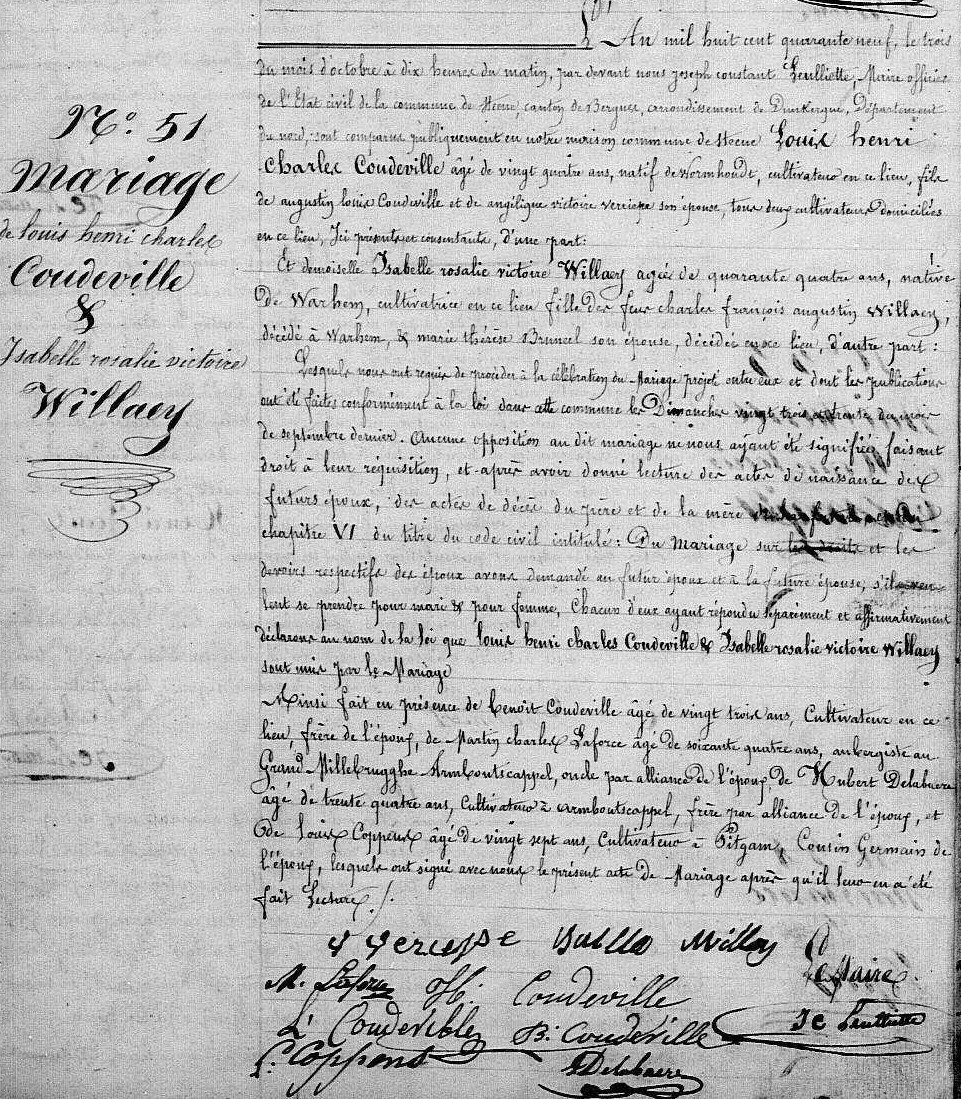 N.o 51
Mariage
de louis henri charles
Coudeville
&
Isabelle rosalie victoire
Willaey
L'An mil huit cent quarante neuf, le trois
du mois d'octobre à dix heures du matin, par devant nous joseph constant Leulliette, Maire officier
de l'État civil de la commune de Steene, canton de Bergues, arrondissement de Dunkerque, Département
du nord, sont comparus publiquement en notre maison commune de Steene Louis henri
Charles Coudeville âgé de vingt quatre ans, natif de Wormhoudt, cultivateur en ce lieu, fils
de augustin louis Coudeville et de angélique victoire son épouse, tous deux cultivateurs domiciliés
en ce lieu, Ici présents et consentants, d'une part:
Et demoiselle Isabelle rosalie victoire Willaey agée de quarante quatre ans, native
de Warhem, cultivatrice en ce lieu fille des feus charles françois augustin Willaey,
décédé à Warhem, & marie thérèse Bruneel son épouse, décédée en ce lieu, d'autre part:
Lesquels nous ont requis de procéder à la célébration du Mariage projeté entre eux et dont les publications
ont été faites conformément à la loi dans cette commune les Dimanches vingt trois et trente du mois
de septembre dernier. Aucune opposition au dit mariage ne nous ayant été signifiée, faisant
droit à leur réquisition, et après avoir donné lecture des actes de naissance des
futurs époux, des actes de décès du père et de la mère
chapitre VI du titre du code civil intitulé: Du Mariage sur les droits et les
devoirs respectifs des époux avons demandé au futur époux et à la future épouse, s'ils veu
lent se prendre pour mari & pour femme, Chacun d'eux ayant répondu séparément et affirmativement
déclarons au nom de la loi que louis henri charles Coudeville & Isabelle rosalie victoire Willaey
sont unis par le Mariage
Ainsi fait en présence de benoit Coudeville âgé de vingt trois ans, Cultivateur en ce
lieu, frère de l'époux, de Martin charles Laforce âgé de soixante quatre ans, aubergiste au
Grand Millebrugghe Armboutscappel, oncle par alliance de l'époux, de Hubert Delabaere
âgé de trente quatre ans, Cultivateur à armboutscappel, frère par alliance de l'époux, et
de louis Coppens âgé de vingt sept ans, Cultivateur à Pitgam, Cousin Germain de
l'époux, lesquels ont signé avec nous le présent acte de Mariage après qu'il leur en a été
fait Lecture ./.
Willaey
Le Maire
M. Laforce H. Coudeville
L. Coudeville B. Coudeville JC Leulliette
L. Coppens Delabaere